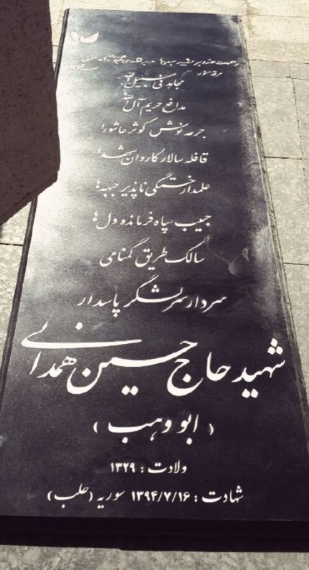 مجاهد فی سبیل الله
مدافع حریم آل الله
جرعه نوش کوثر عاشورا
قافله سالار کاروان شهدا
علمدار خستگی ناپذیر جبهه‌ها
حبیب سپاه فرمانده دل‌ها
سالک طریق گمنامی
سردار سرلشگر پاسدار
شهید حاج حسین همدانی
(ابو وهب)
ولادت : ۱۳۲۹
شهادت : ۱۳۹۴/۷/۱۶ سوریه (حلب)